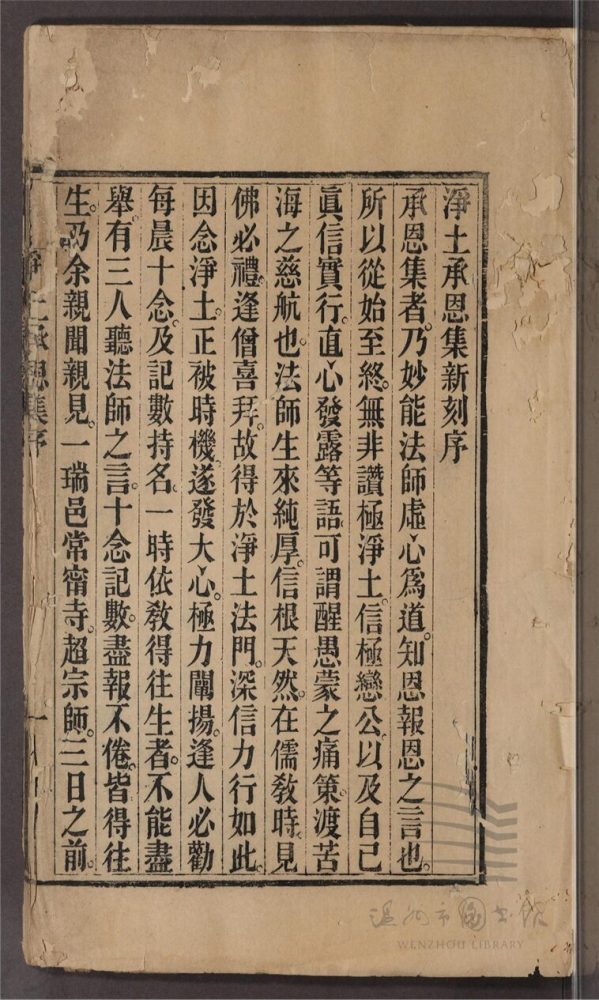 淨土承恩集新刻序
承恩集者。乃妙能法師虛心爲道。知恩報恩之言也。
所以從始至終。無非讚極淨土。信極戀公。以及自己
眞信實行。直心發露等語。可謂醒愚蒙之痛策。渡苦
海之慈航也。法師生來純厚。信根天然。在儒敎時。見
佛必禮。逢僧喜拜。故得於淨土法門。深信力行如此。
因念淨土。正被時機。遂發大心。極力闡揚。逢人必勸
每晨十念。及記數持名。一時依敎得往生者。不能盡
舉。有三人聽法師之言。十念記數。盡報不倦。皆得往
生。乃余親聞親見。一瑞邑常甯寺。超宗師。三日之前。
淨土承恩集序
一
温州市圖书馆
WENZHOU LIBRARY